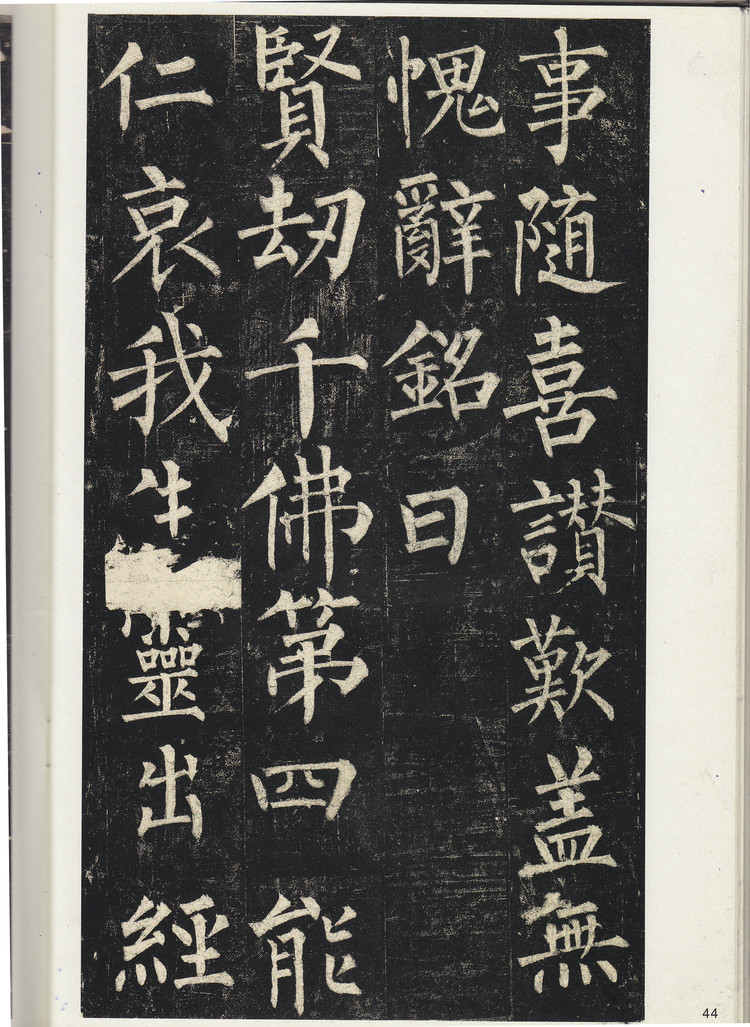 事隨喜讃歎盖無
愧辭銘曰
賢刼千佛第四能
仁哀我生靈出經
44